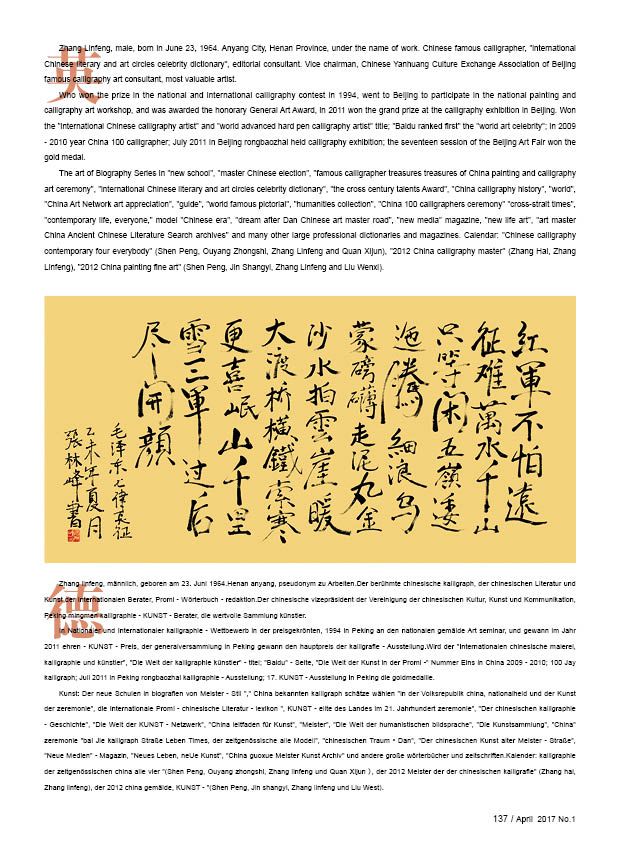 英
Zhang Linfeng, male, born in June 23, 1964. Anyang City, Henan Province, under the name of work. Chinese famous calligrapher, "International
Chinese literary and art circles celebrity dictionary", editorial consultant. Vice chairman, Chinese Yanhuang Culture Exchange Association of Beijing
famous calligraphy art consultant, most valuable artist.
Who won the prize in the national and international calligraphy contest in 1994, went to Beijing to participate in the national painting and
calligraphy art workshop, and was awarded the honorary General Art Award, in 2011 won the grand prize at the calligraphy exhibition in Beijing. Won
the "International Chinese calligraphy artist" and "world advanced hard pen calligraphy artist" title; "Baidu ranked first" the "world art celebrity"; in 2009
- 2010 year China 100 calligrapher; July 2011 in Beijing rongbaozhai held calligraphy exhibition; the seventeen session of the Beijing Art Fair won the
gold medal.
The art of Biography Series in "new school", "master Chinese election", "famous calligrapher treasures treasures of China painting and calligraphy
art ceremony", "international Chinese literary and art circles celebrity dictionary", "the cross century talents Award", "China calligraphy history", "world",
"China Art Network art appreciation", "guide", "world famous pictorial", "humanities collection", "China 100 calligraphers ceremony" "cross-strait times",
"contemporary life, everyone," model "Chinese era", "dream after Dan Chinese art master road", "new media" magazine, "new life art", "art master
China Ancient Chinese Literature Search archives" and many other large professional dictionaries and magazines. Calendar: "Chinese calligraphy
contemporary four everybody" (Shen Peng, Ouyang Zhongshi, Zhang Linfeng and Quan Xijun), "2012 China calligraphy master" (Zhang Hai, Zhang
Linfeng), "2012 China painting fine art" (Shen Peng, Jin Shangyi, Zhang Linfeng and Liu Wenxi).
红軍不怕遠
征难萬水千山
只等闲五嶺逶
迤腾细浪乌
蒙磅礴走泥丸金
沙水拍雲崖暖
大渡桥横鐵索寒
更喜岷山千里
雪三軍过后
尽開颜
毛泽东七律长征
乙未年夏月
張林峰書
德
Zhang linfeng, männlich, geboren am 23. Juni 1964.Henan anyang, pseudonym zu Arbeiten.Der berühmte chinesische kalligraph, der chinesischen Literatur und
Kunst den internationalen Berater, Promi - Wörterbuch - redaktion.Der chinesische vizepräsident der Vereinigung der chinesischen Kultur, Kunst und Kommunikation,
Peking mingmen kalligraphie - KUNST - Berater, die wertvolle Sammlung künstler.
In Nationaler und internationaler kalligraphie - Wettbewerb in der preisgekrönten, 1994 in Peking an den nationalen gemälde Art seminar, und gewann im Jahr
2011 ehren - KUNST - Preis, der generalversammlung in Peking gewann den hauptpreis der kalligrafie - Ausstellung.Wird der "internationalen chinesische malerei,
kalligraphie und künstler", "Die Welt der kalligraphie künstler" - titel; "Baidu" - Seite, "Die Welt der Kunst in der Promi -" Nummer Eins in China 2009 - 2010; 100 Jay
kalligraph; Juli 2011 in Peking rongbaozhai kalligraphie - Ausstellung; 17. KUNST - Ausstellung in Peking die goldmedaille.
Kunst: Der neue Schulen in biografien von Meister - Stil "," China bekannten kalligraph schätze wählen "in der Volksrepublik china, nationalheid und der Kunst
der zeremonie", die internationale Promi - chinesische Literatur - lexikon ", KUNST - elite des Landes im 21. Jahrhundert zeremonie", "Der chinesischen kalligraphie
- Geschichte", "Die Welt der KUNST - Netzwerk", "China leitfaden für Kunst", "Meister", "Die Welt der humanistischen bildsprache", "Die Kunstsammlung", "China"
zeremonie "bai Jie kalligraph Straße Leben Times, der zeitgenössische alle Modell", "chinesischen Traum • Dan", "Der chinesischen Kunst alter Meister - Straße",
"Neue Medien" - Magazin, "Neues Leben, neUe Kunst", "China guoxue Meister Kunst Archiv" und andere große wörterbücher und zeitschriften.Kalender: kalligraphie
der zeitgenössischen china alle vier "(Shen Peng, Ouyang zhongshi, Zhang linfeng und Quan Xijun ), der 2012 Meister der der chinesischen kalligrafie" (Zhang hai,
Zhang linfeng), der 2012 china gemälde, KUNST - "(Shen Peng, Jin shangyi, Zhang linfeng und Liu West).
137 / April 2017 No.1